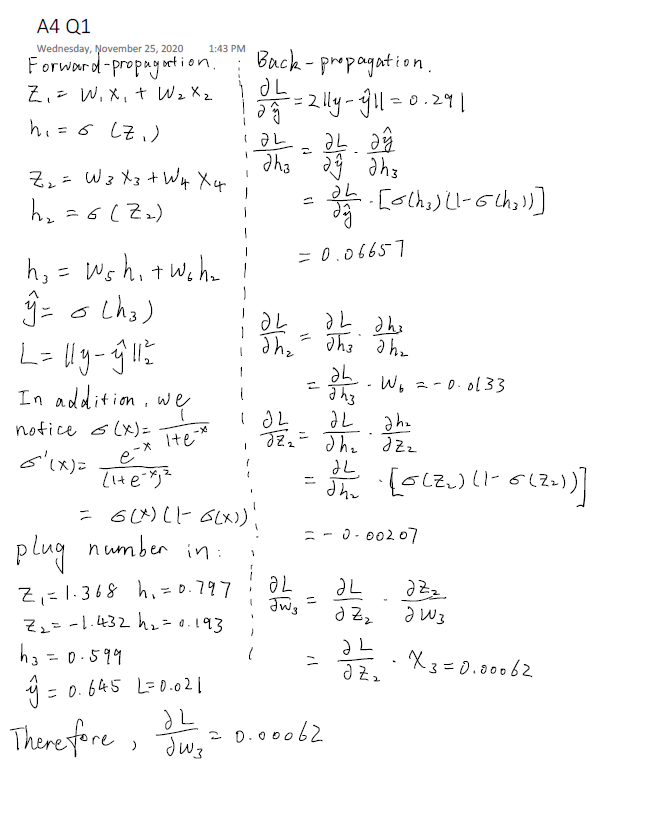 A4 Q1
Wednesday, November 25, 2020 1:43 PM
Forward-propagation.
Z₁ = W₁X₁ + W₂X₂
h₁ = σ(Z₁)
Z₂ = W₃X₃ + W₄X₄
h₂ = σ(Z₂)
h₃ = W₅h₁ + W₆h₂
ŷ = σ(h₃)
L = ||y-ŷ||₂²
In addition, we
notice σ(x) = 1/(1+e^-x)
σ'(x) = e^-x/(1+e^-x)²
= σ(x)(1-σ(x))
plug number in:
Z₁ = 1.368 h₁ = 0.797
Z₂ = -1.432 h₂ = 0.193
h₃ = 0.599
ŷ = 0.645 L = 0.021
Back-propagation.
∂L/∂ŷ = 2||y-ŷ|| = 0.291
∂L/∂h₃ = ∂L/∂ŷ · ∂ŷ/∂h₃
= ∂L/∂ŷ · [σ(h₃)(1-σ(h₃))]
= 0.06657
∂L/∂h₂ = ∂L/∂h₃ · ∂h₃/∂h₂
= ∂L/∂h₃ · W₆ = -0.0133
∂L/∂Z₂ = ∂L/∂h₂ · ∂h₂/∂Z₂
= ∂L/∂h₂ · [σ(Z₂)(1-σ(Z₂))]
= -0.00207
∂L/∂W₃ = ∂L/∂Z₂ · ∂Z₂/∂W₃
= ∂L/∂Z₂ · X₃ = 0.00062
Therefore, ∂L/∂W₃ = 0.00062